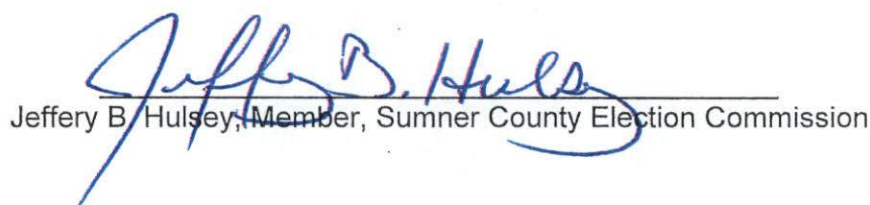 Jeffery B. Hulsey
Jeffery B. Hulsey, Member, Sumner County Election Commission